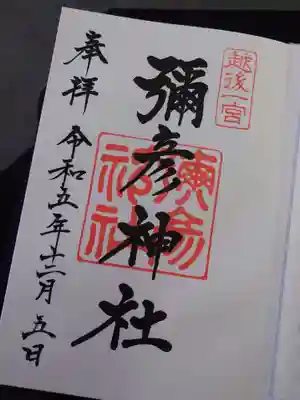 越後一宮
彌彦神社
彌彦神社
奉拝
令和五年十二月五日